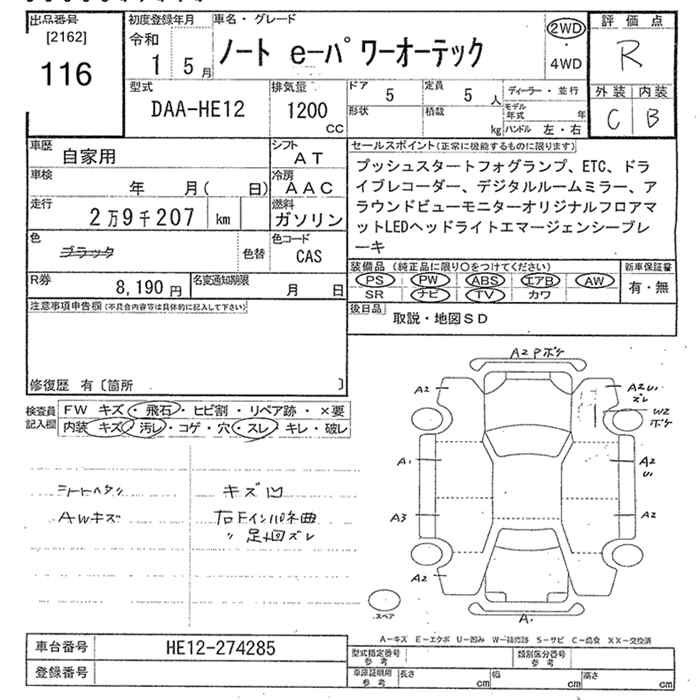 出品番号
[2162]
116
初度登録年月
令和
1 5月
車名・グレード
ノート e-パワーオーテック
2WD
・
4WD
評価点
R
外装 内装
C B
型式
DAA-HE12
排気量
1200
CC
ドア
5
定員
5 人
形状
積載
kg
ディーラー・並行
モデル年式 年
ハンドル 左・右
車歴
自家用
シフト
AT
車検
年 月( 日)
冷房
AAC
走行
2万9千207 km
燃料
ガソリン
色
ブラック
色替
色コード
CAS
R券
8,190円
名変通知期限
月 日
セールスポイント(正常に機能するものに限ります)
プッシュスタートフォグランプ、ETC、ドラ
イブレコーダー、デジタルルームミラー、ア
ラウンドビューモニターオリジナルフロアマ
ットLEDヘッドライトエマージェンシーブレ
ーキ
装備品 (純正品に限り〇をつけてください)
PS PW ABS エアB AW
SR ナビ TV カワ
新車保証書
有・無
後日品
取説・地図SD
注意事項申告欄(不具合内容等は具体的に記入して下さい)
修復歴 有〔箇所 〕
検査員
記入欄
FW キズ・飛石・ヒビ割・リペア跡・×要
内装 キズ・汚レ・コゲ・穴・スレ・キレ・破レ
シートヘタリ
AWキズ
キズ凹
右Fインパネ曲
〃 足回ズレ
A2 Pボケ
A2
A2 U1
ズレ
W2
ボケ
A1
A2
U1
A3
A2
A2
A1
スペア
A-キズ E-エクボ U-凹み W-補修跡 S-サビ C-腐食 XX-交換済
車台番号
HE12-274285
登録番号
型式指定番号
参考
類別区分番号
参考
車庫証明用
参考
長さ cm
幅 cm
高さ cm